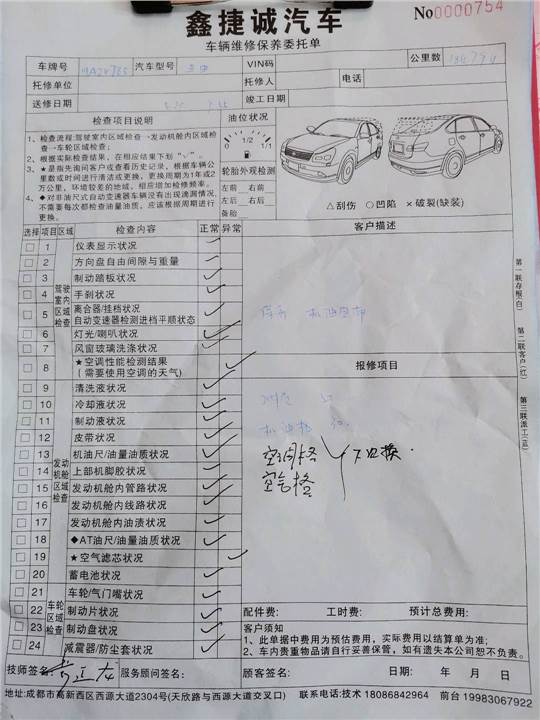 鑫捷诚汽车
No0000754
车辆维修保养委托单
车牌号 汽车型号 VIN码 公里数
托修单位 托修人 电话
送修日期 竣工日期
检查项目说明
1、检查流程:驾驶室内区域检查→发动机舱内区域检
查→车轮区域检查;
2、根据实际检查结果，在相应结果下划“√”。
3、★是指先询问客户或查看历史记录，根据车辆公
里数或时间进行清洁或更换，更换周期为1年或2
万公里，环境较差的地域，相应增加检修频率。
4、◆对非油尺式自动变速器车辆没有出现渗漏情况,
不需要每次都检查油量油质，应该根据周期进行
更换。
油位状况
0 1/2 1/1
轮胎外观检测
左前 右前
左后 右后
备胎
△刮伤 ○凹陷 ×破裂(缺装)
选择 项目 区域 检查内容 正常 异常
客户描述
驾驶室内区域检查
1 仪表显示状况
2 方向盘自由间隙与重量
3 制动踏板状况
4 手刹状况
5 离合器/挂档状况
自动变速器检测进档平顺状态
6 灯光/喇叭状况
7 风窗玻璃洗涤状况
8 ★空调性能检测结果
(需要使用空调的天气)
报修项目
发动机舱区域检查
9 清洗液状况
10 冷却液状况
11 制动液状况
12 皮带状况
13 机油尺/油量油质状况
14 上部机脚胶状况
15 发动机舱内管路状况
16 发动机舱内线路状况
17 发动机舱内油渍状况
18 ◆AT油尺/油量油质状况
19 ★空气滤芯状况
20 蓄电池状况
机油格
空调格
空气格
下次换
车轮区域检查
21 车轮/气门嘴状况
22 制动片状况
23 制动盘状况
24 减震器/防尘套状况
配件费: 工时费: 预计总费用:
客户须知
1、此单据中费用为预估费用，实际费用以结算单为准;
2、车内贵重物品请自行妥善保管，如有遗失本公司恕不负责。
技师签名: 服务顾问签名: 顾客签名: 日期: 年 月 日
地址:成都市高新西区西源大道2304号(天欣路与西源大道交叉口) 联系电话:技术 18086842964 前台 19983067922
第一联存根(白)
第二联客户(红)
第三联派工(蓝)